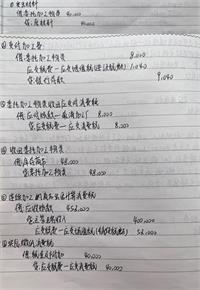 ①发出材料
借:委托加工物资 40,000
贷:原材料 40,000
②支付加工费
借:委托加工物资 8,000
应交税费—应交增值税(进项税额) 1,040
贷:银行存款 9,040
③委托加工物资收回应交的消费税
借:应收账款
8,000
贷:应交税费—应交消费税 8,000
④收回委托加工物资
借:库存商品 48,000
贷:委托加工物资 48,000
借:应收账款 458,000
贷:主营业务收入 400,000
应交税费—应交增值税(销项税额) 58,000
借:税金及附加 40,000
贷:应交税费—应交消费税 40,000